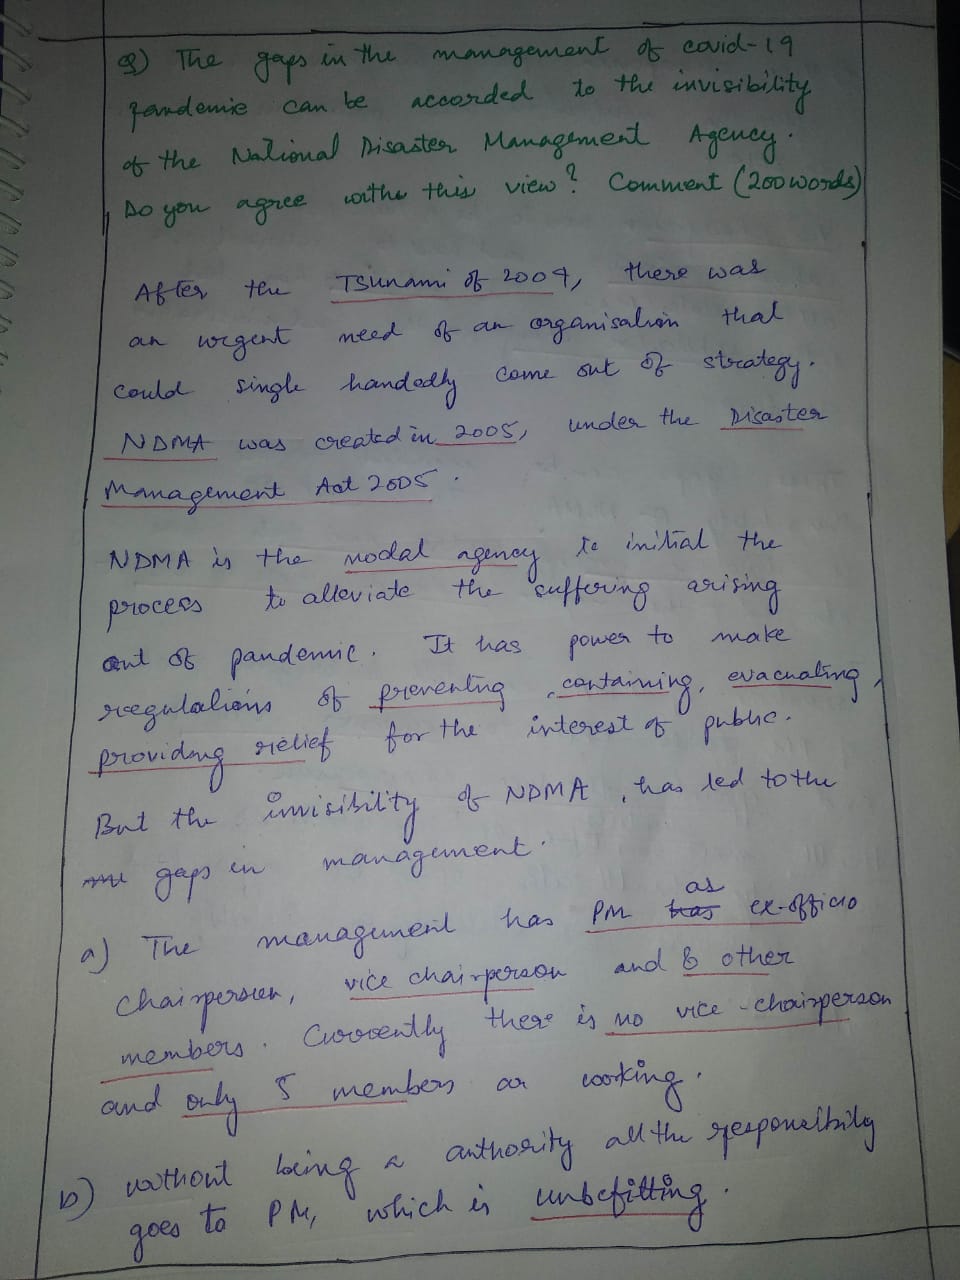 Q) The gaps in the management of covid-19
pandemic can be accorded to the invisibility
of the National Disaster Management Agency.
Do you agree withe this view? Comment (200 words)
After the Tsunami of 2004, there was
an urgent need of an organisation that
could single handedly come out of strategy.
NDMA was created in 2005, under the Disaster
Management Act 2005.
NDMA is the nodal agency to initial the
process to alleviate the suffering arising
out of pandemic. It has power to make
regulations of preventing, containing, evacuating,
providing relief for the interest of public.
But the invisibility of NDMA, has led to the
gaps in management.
a) The management has PM as ex-officio
chairperson, vice chairperson and 8 other
members. Currently there is no vice-chairperson
and only 5 members are working.
b) without being a authority all the responsibility
goes to PM, which is unbefitting.